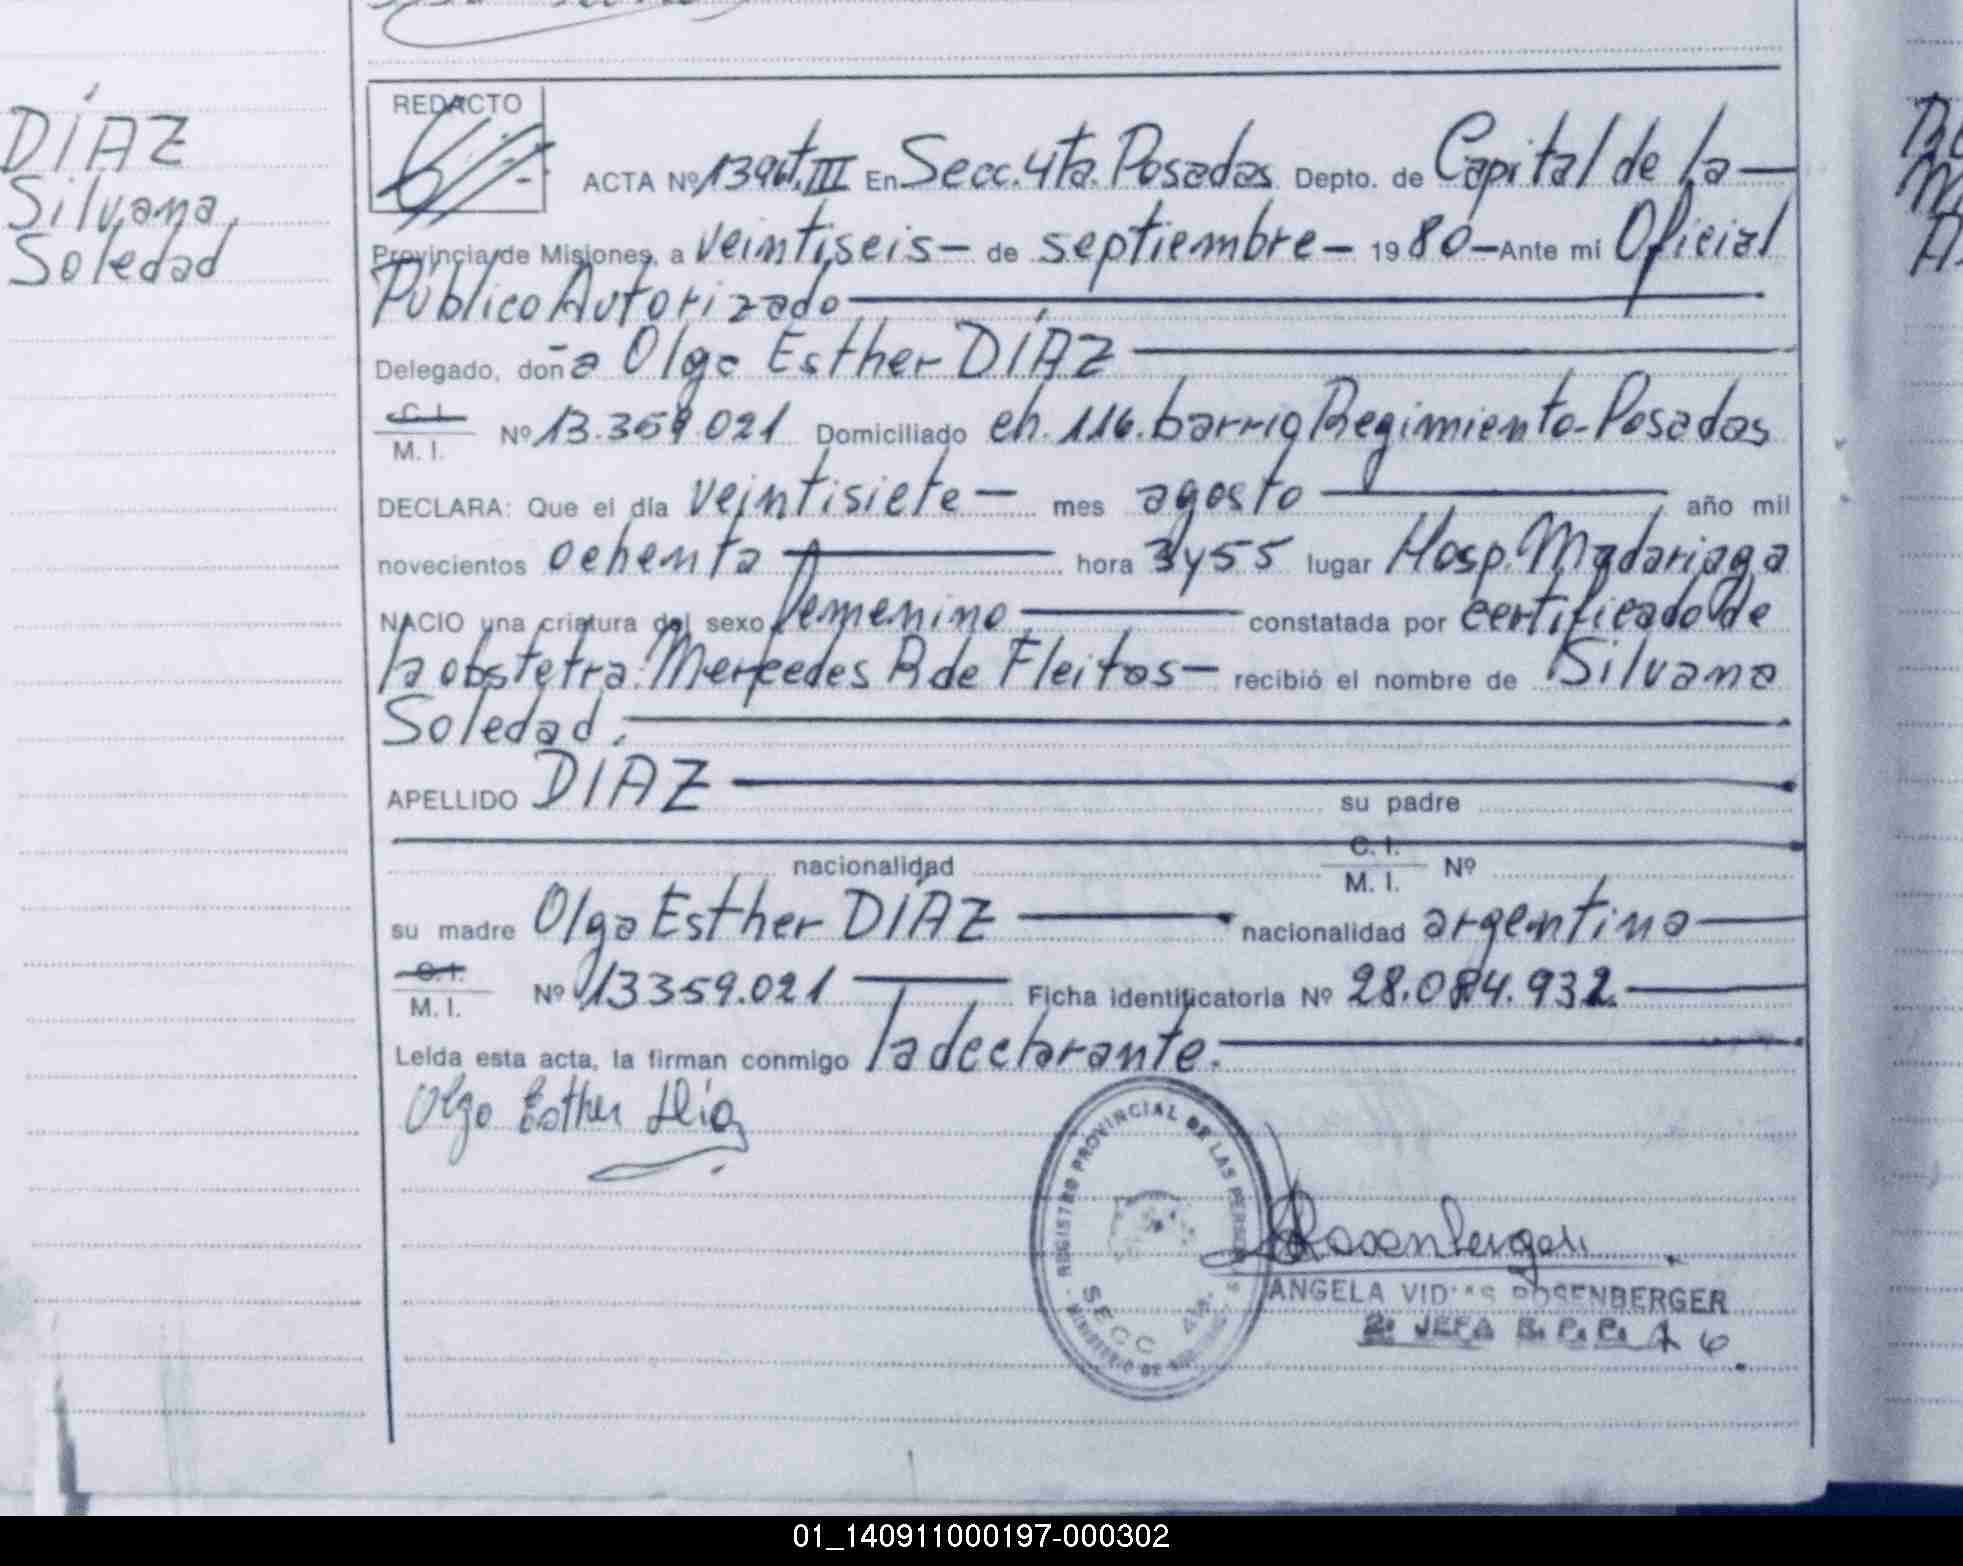 DÍAZ
Silvana
Soledad
REDACTO
ACTA Nº 1396 t. III En Secc. 4ta. Posadas Depto. de Capital de la —
Provincia de Misiones, a veintiseis — de septiembre — 19 80 — Ante mí Oficial
Público Autorizado
Delegado, doña Olga Esther DÍAZ
C. I.
M. I.
Nº 13.359.021 Domiciliado ch. 116. barrio Regimiento - Posadas
DECLARA: Que el día veintisiete — mes agosto año mil
novecientos ochenta hora 3 y 55 lugar Hosp. Madariaga
NACIO una criatura del sexo femenino constatada por certificado de
la obstetra. Mercedes R de Fleitas — recibió el nombre de Silvana
Soledad.
APELLIDO DIAZ su padre
nacionalidad C. I. M. I. Nº
su madre Olga Esther DÍAZ nacionalidad argentina
C. I.
M. I.
Nº 13359.021 Ficha identificatoria Nº 28.084.932
Leída esta acta, la firman conmigo la declarante.
Olga Esther Díaz
REGISTRO PROVINCIAL DE LAS PERSONAS
SECC 4ta.
MINISTERIO DE
Rosenberger
ANGELA ROSENBERGER
2º JEFA R. P. P.
01_140911000197-000302